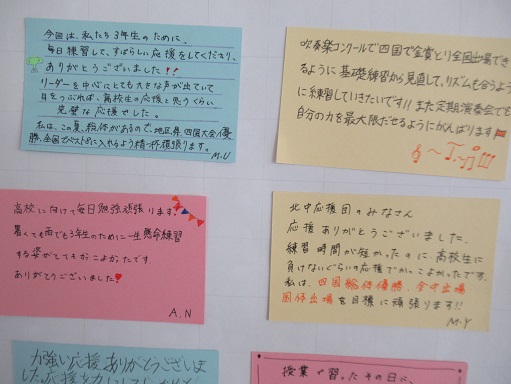 今回は、私たち3年生のために、
毎日練習して、すばらしい応援をしてくださり、
ありがとうございました!!
リーダーを中心にとても大きな声が出ていて
目をつぶれば、高校生の応援と思うくらい
完璧な応援でした。
私は、この夏、総体があるので、地区、県、四国大会優
勝、全国でベスト8に入れるよう精一杯頑張ります。
M.U
吹奏楽コンクールで四国で金賞とり全国出場でき
るように基礎練習から見直して、リズムも合うよう
に練習していきたいです!!また定期演奏会でも
自分の力を最大限だせるようにがんばります
高校に向けて毎日勉強頑張ります!
暑くても雨でも3年生のために一生懸命練習
する姿がとてもかっこよかったです
ありがとうございました
A.N
北中応援団のみなさん
応援ありがとうございました。
練習時間が短かったのに、高校生に
負けないぐらいの応援でかっこよかったです。
私は、四国総体優勝、全中出場
国体出場を目標に頑張ります!!
M.Y
力強い応援ありがとうございま
した。応援
授業で習ったその日に、